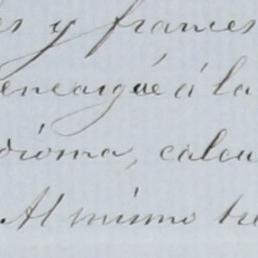 es y frances
encargué á la
dioma, calcu
Al mismo tie